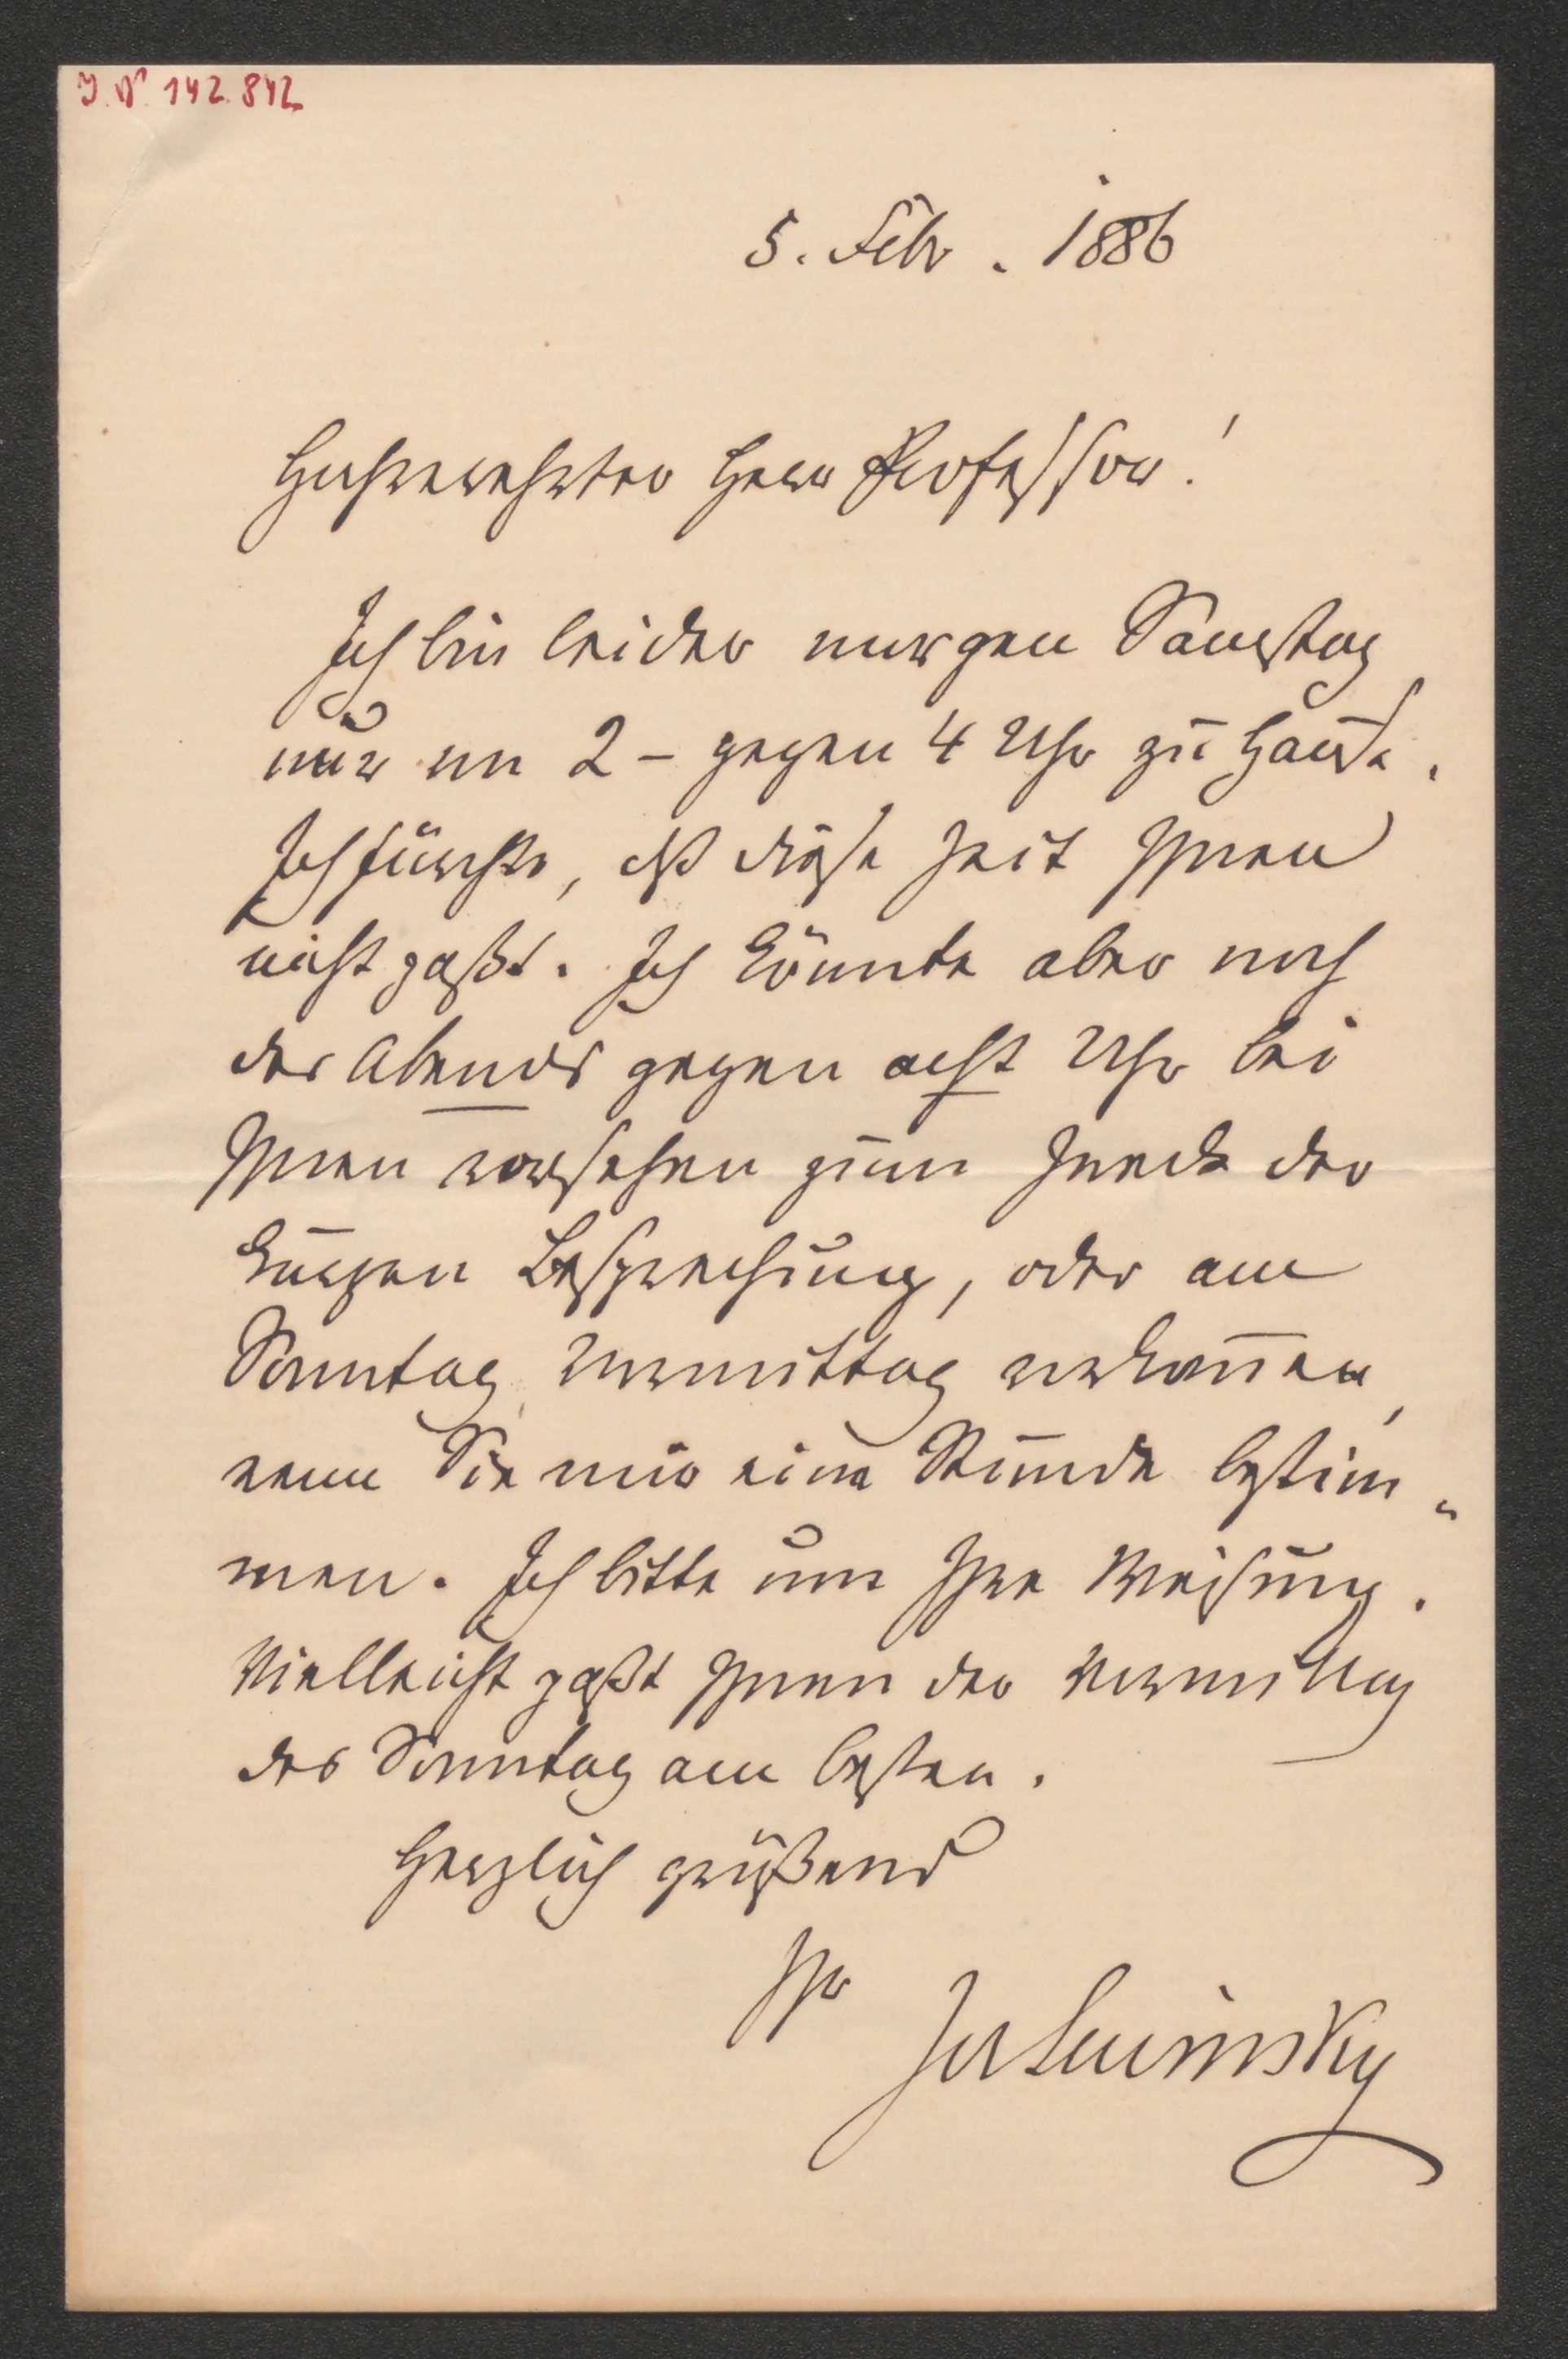 J. N. 142.842
5. Febr. 1886
Hochverehrter Herr Professor!
Ich bin leider morgen Samstag
nur von 2 – gegen 4 Uhr zu Hause.
Ich fürchte, dß diese Zeit Ihnen
nicht paßt. Ich könnte aber noch
des Abends gegen acht Uhr bei
Ihnen vorsehen zum Zweck der
kurzen Besprechung, oder am
Sonntag Vormittag vorkom̅en,
wenn Sie mir eine Stunde bestim„
men. Ich bitte um Ihre Weisung.
Vielleicht paßt Ihnen der Vormittag
des Sonntag am besten.
Herzlich grüßend
Ihr
Jos Lewinsky